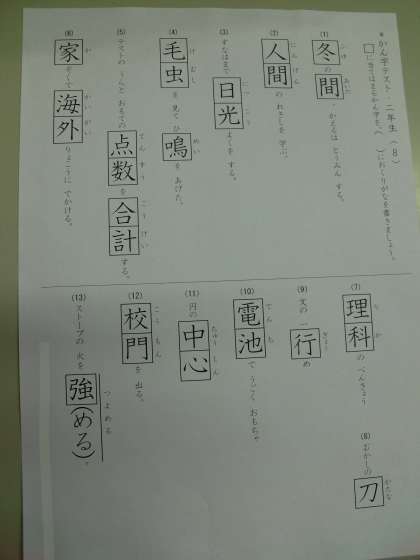 ＊かん字テスト・二年生（8）
□に当てはまるかん字を、（　）におくりがなを書きましょう。
ふゆ　あいだ
(1) 冬の間、かえるは とうみん する。
にんげん
(2) 人間の れきしを 学ぶ。
にっこう
(3) すなはまで 日光よくをする。
けむし　めい
(4) 毛虫を 見て ひ鳴を あげた。
てんすう　ごうけい
(5) テストの うらと おもての 点数を 合計する。
か　かいがい
(6) 家ぞくで 海外りょこうに でかける。
りか
(7) 理科の べんきょう
かたな
(8) むかしの 刀
ぎょう
(9) 文の 一行め
でんち
(10) 電池で うごく おもちゃ
ちゅうしん
(11) 円の 中心
こうもん
(12) 校門を 出る。
つよめる
(13) ストーブの 火を 強(める)。